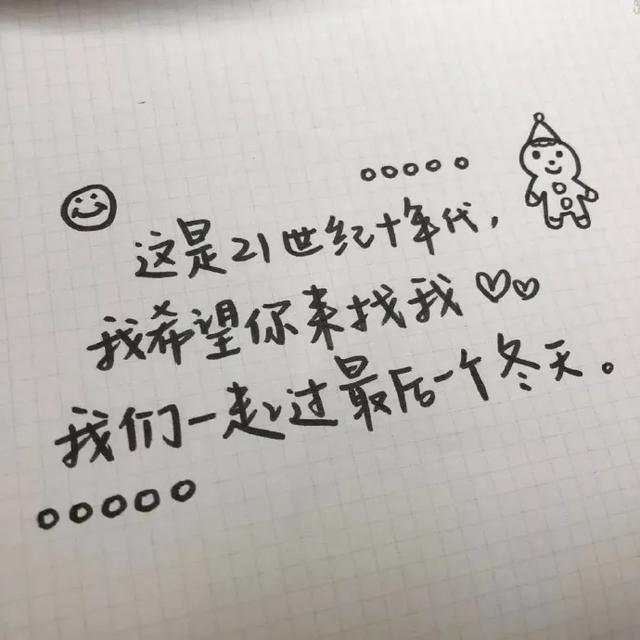 这是21世纪十年代，
我希望你来找我
我们一起过最后一个冬天。